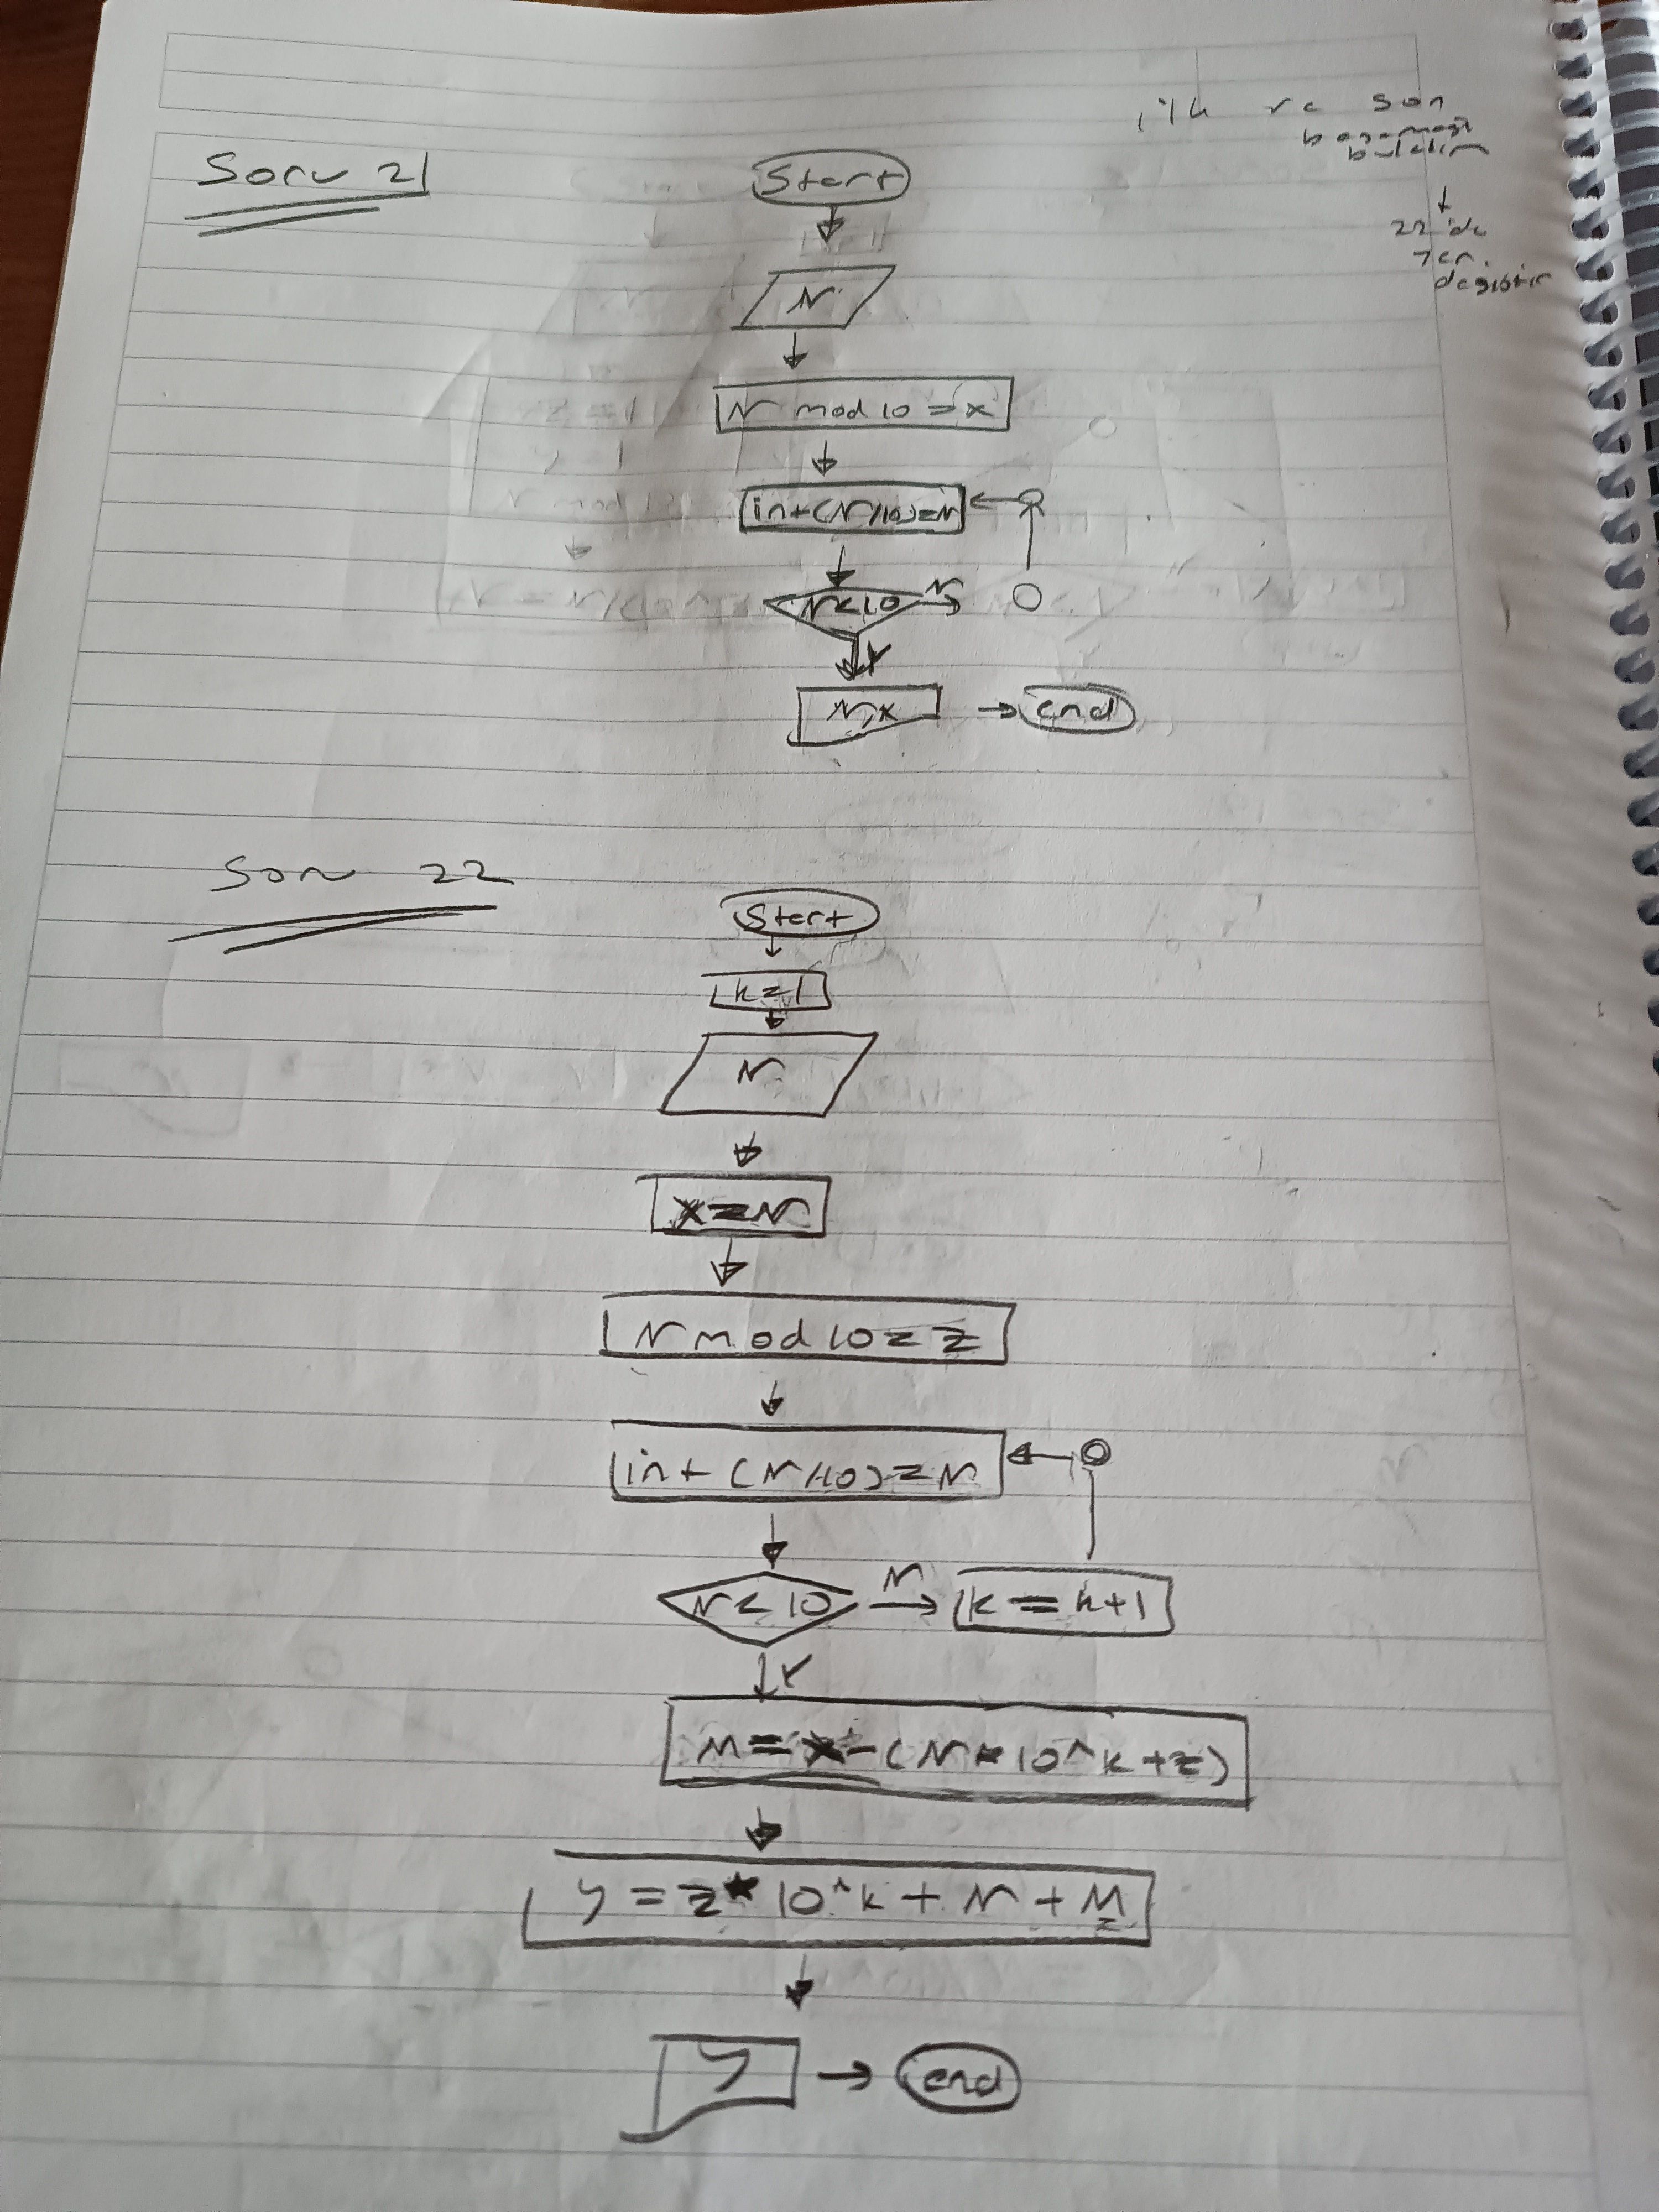 ilk ve son
basamağı
bulalım
Soru 21
Start
22 'de
yer.
değiştir
N
N mod 10 = x
int(N/10)=N
N<10 N
Y
N,x end
Soru 22
Start
k=1
N
x=N
N mod 10 = z
int (N/10) = N
N<10 N k = k+1
Y
M = x-(N*10^k+z)
y = z*10^k + N + M
y end